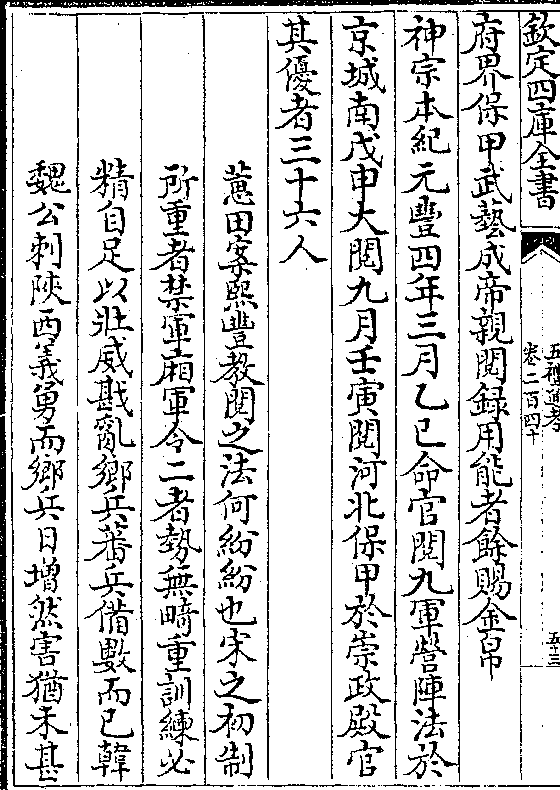 欽定四庫全書
五禮通考
卷二百四十
五十三
府界保甲武藝成帝親閱録用能者餘賜金帛
神宗本紀元豐四年三月乙巳命官閱九軍營陣法於
京城南戊申大閱九月壬寅閱河北保甲於崇政殿官
其優者三十六人
蕙田案熙豐教閱之法何紛紛也宋之初制
所重者禁軍廂軍今二者勢無畸重訓練必
精自足以壯威戡亂鄉兵蕃兵備數而已韓
魏公刺陜西義勇而鄉兵日增然害猶未甚